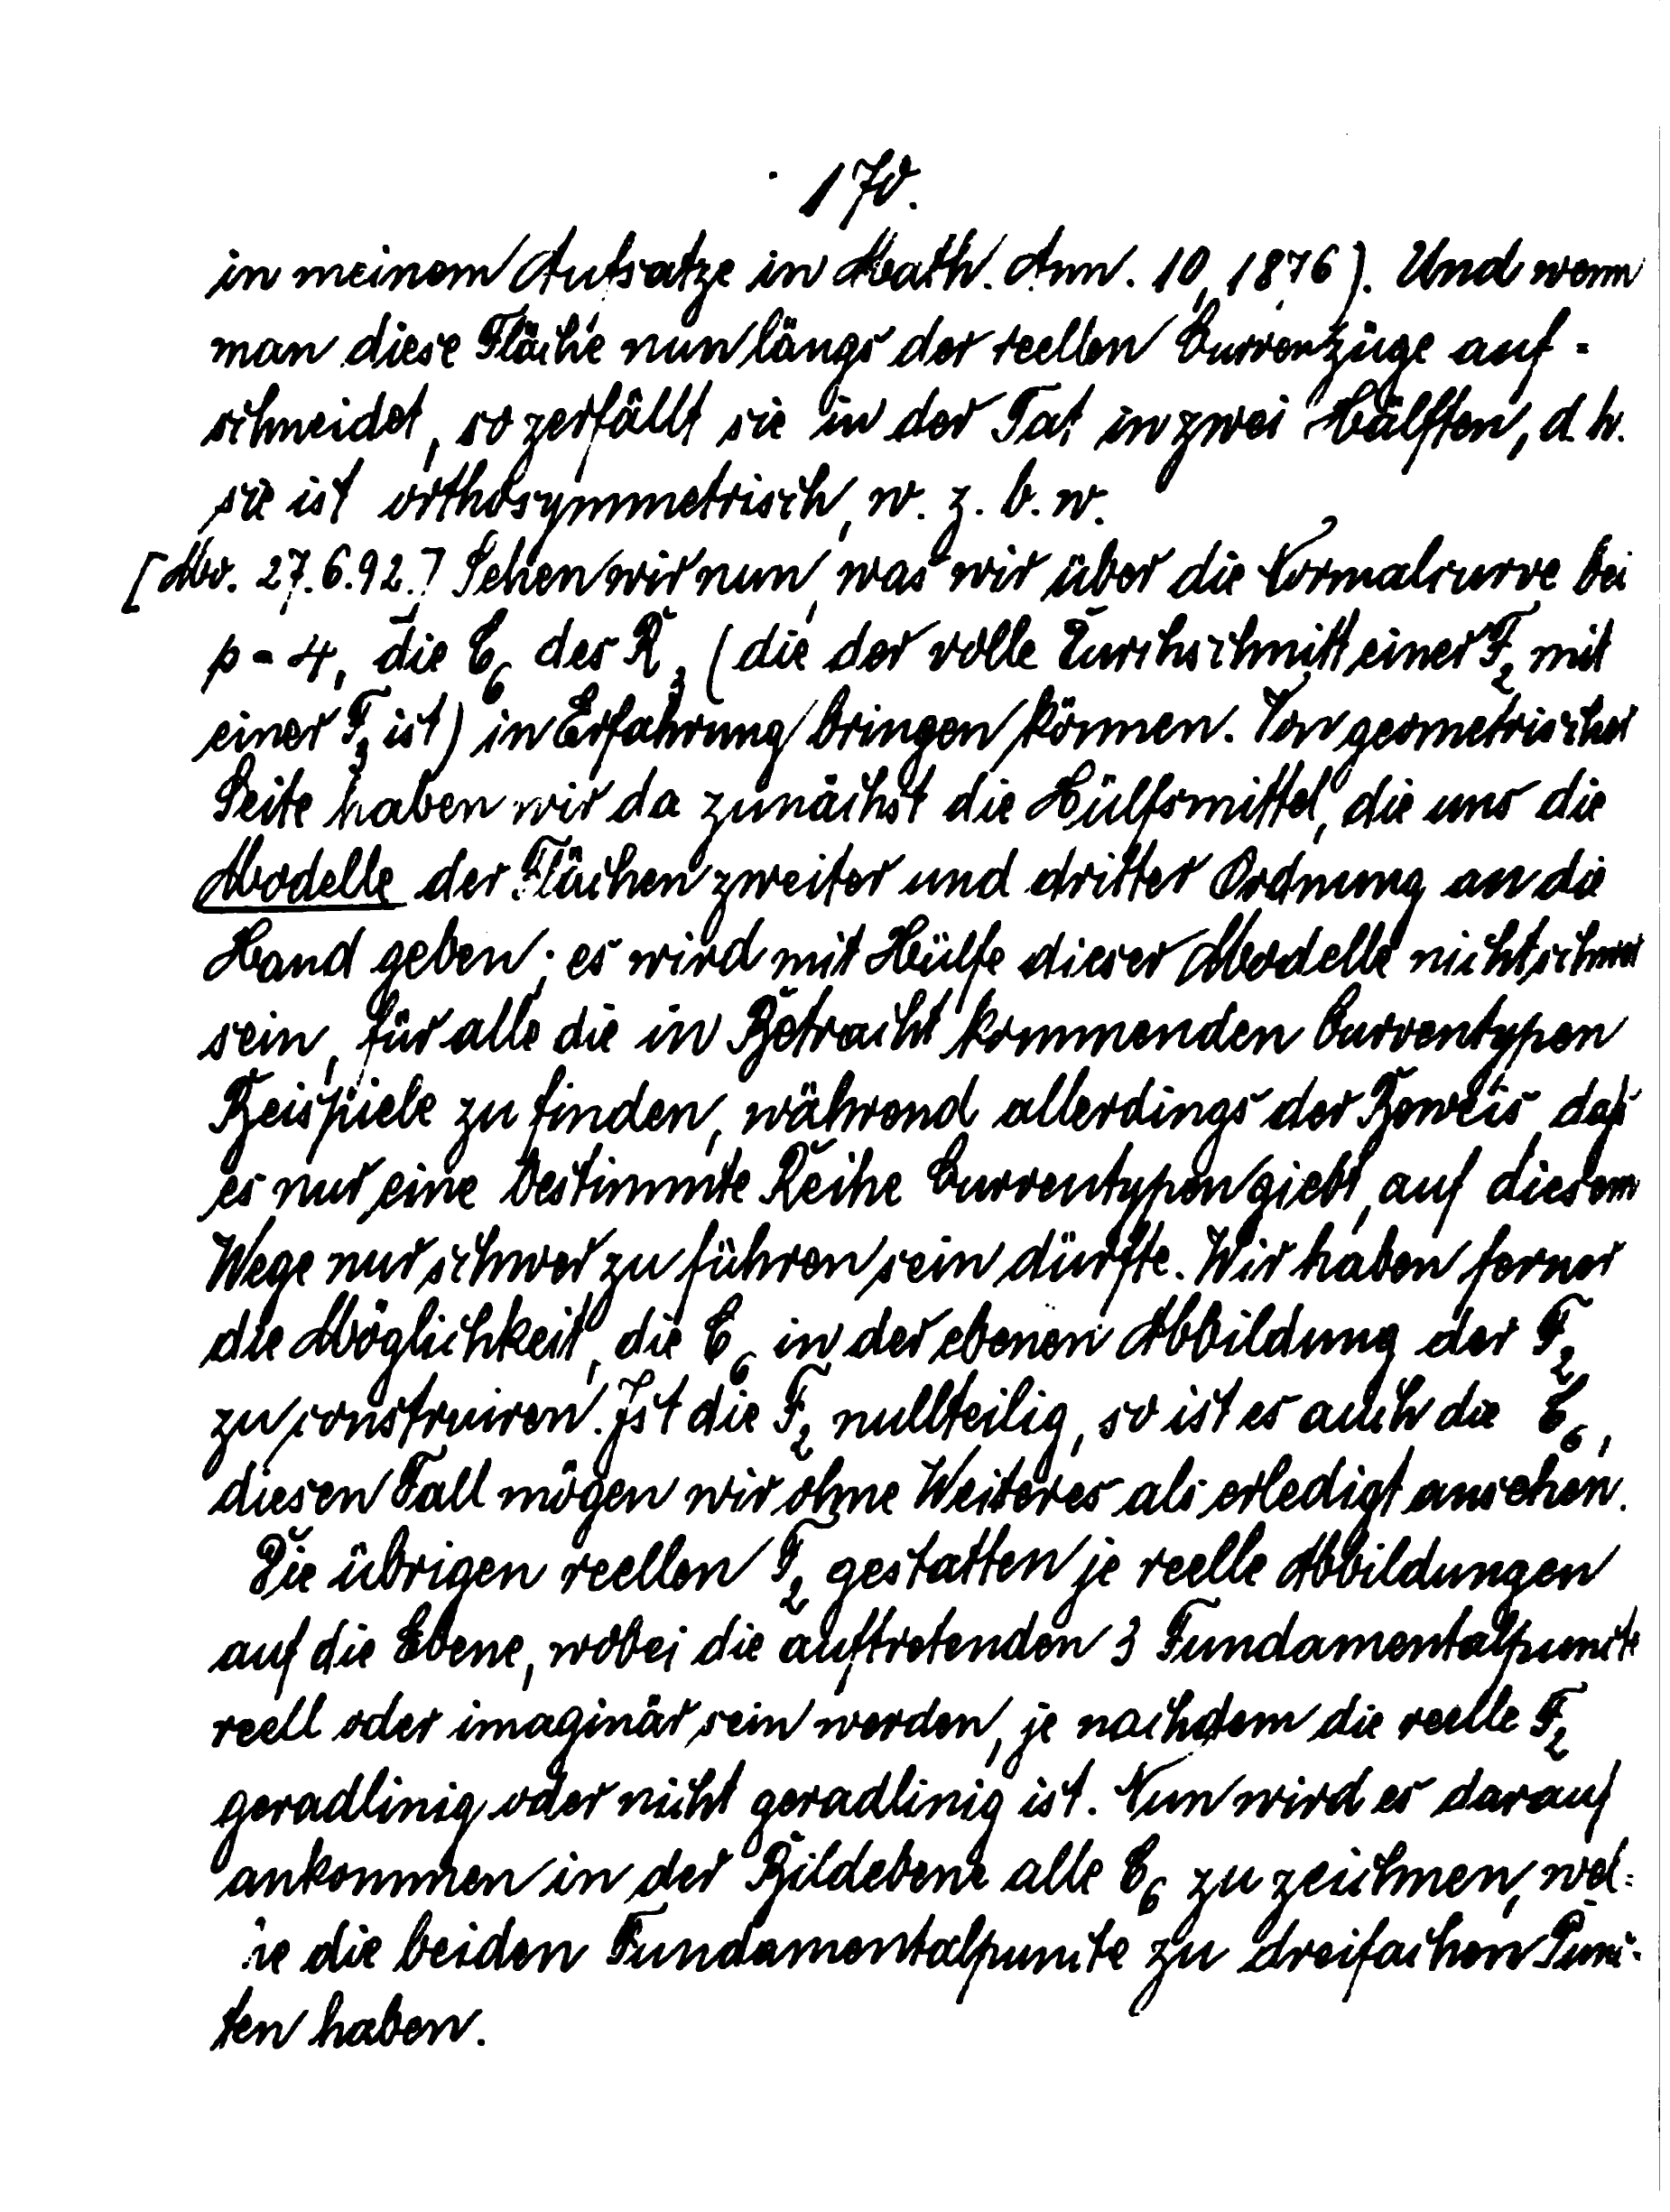 170.
in meinem Aufsatze in Math. Ann. 10, 1876). Und wenn
man diese Fläche nun längs der reellen Curvenzüge auf-
schneidet, so zerfällt sie in der Tat in zwei Hälften, d. h.
sie ist orthosymmetrisch, w. z. b. w.
[Mo. 27.6.92.] Sehen wir nun, was wir über die Normalcurve bei
p = 4, die C₆ des R₃ (die der volle Durchschnitt einer F₂ mit
einer F₃ ist) in Erfahrung bringen können. Von geometrischer
Seite haben wir da zunächst die Hülfsmittel, die uns die
Modelle der Flächen zweiter und dritter Ordnung an die
Hand geben; es wird mit Hülfe dieser Modelle nicht schwer
sein, für alle die in Betracht kommenden Curventypen
Beispiele zu finden, während allerdings der Beweis, daß
es nur eine bestimmte Reihe Curventypen giebt, auf diesem
Wege nur schwer zu führen sein dürfte. Wir haben ferner
die Möglichkeit, die C₆ in der ebenen Abbildung der F₂
zu construiren. Ist die F₂ nullteilig, so ist es auch die C₆,
diesen Fall mögen wir ohne Weiteres als erledigt ansehen.
Die übrigen reellen F₂ gestatten je reelle Abbildungen
auf die Ebene, wobei die auftretenden 3 Fundamentalpuncte
reell oder imaginär sein werden, je nachdem die reelle F₂
geradlinig oder nicht geradlinig ist. Nun wird es darauf
ankommen in der Bildebene alle C₆ zu zeichnen, wel-
che die beiden Fundamentalpuncte zu dreifachen Punc-
ten haben.